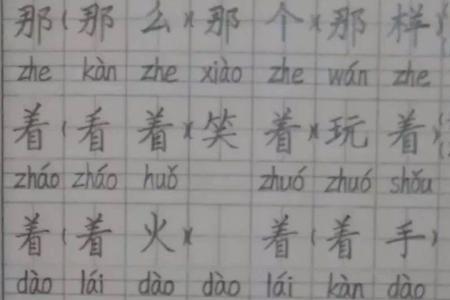 那(那么)(那个)(那样)
zhe kàn zhe xiào zhe wán zhe
着(看着)(笑着)(玩着)
zháo zháo huǒ zhuó zhuó shǒu
着(着火) 着(着手)
dào lái dào dào lái kàn dào